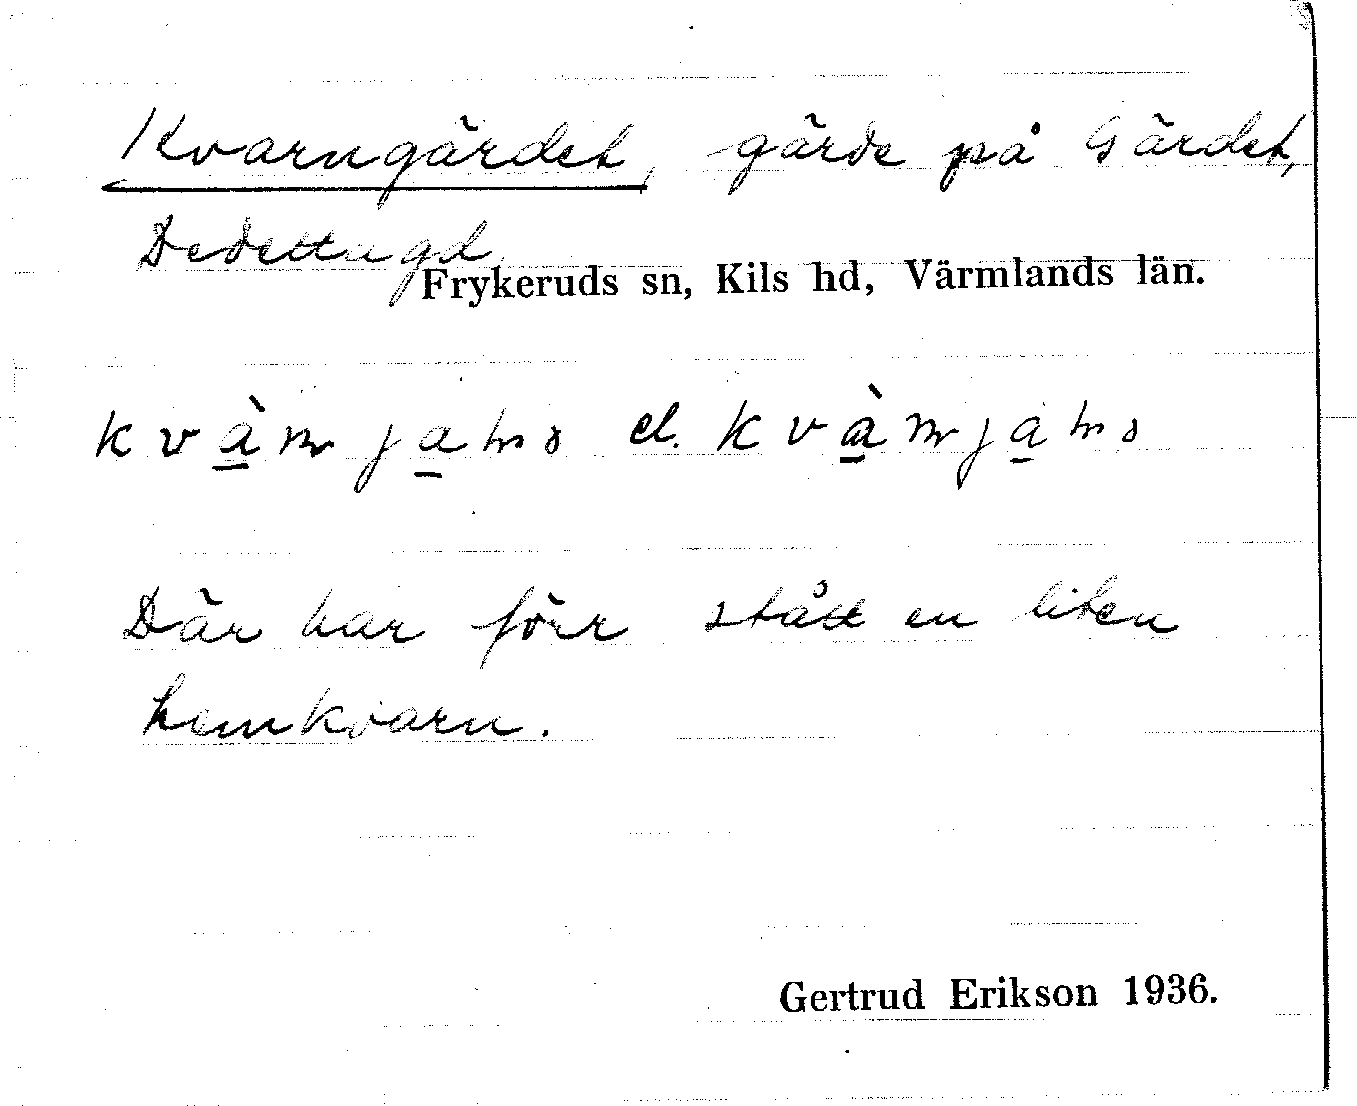 Kvarngärdet, gärde på Gärdet,
Frykeruds sn, Kils hd, Värmlands län.
el.
Där har förr stått en liten
hemkvarn.
Gertrud Erikson 1936.